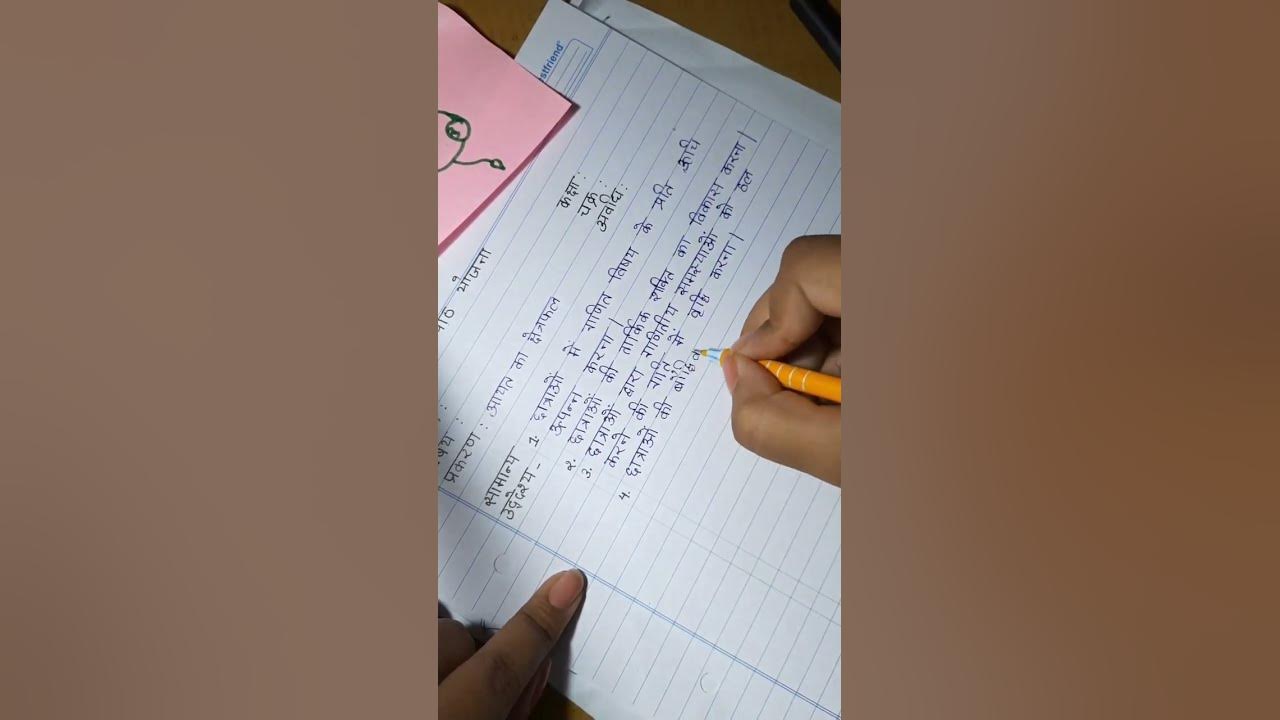 stfriend
पाठ योजना
कक्षा :
चक्र :
अवधि :
प्रकरण : आयत का क्षेत्रफल
सामान्य
उद्देश्य - 1. छात्राओं में गणित विषय के प्रति रूचि
उत्पन्न करना।
2. छात्राओं की तार्किक शक्ति का विकास करना।
3. छात्राओं द्वारा गणितीय समस्याओं को हल
करने की गति में वृद्धि करना।
4. छात्राओं की बौद्धिक